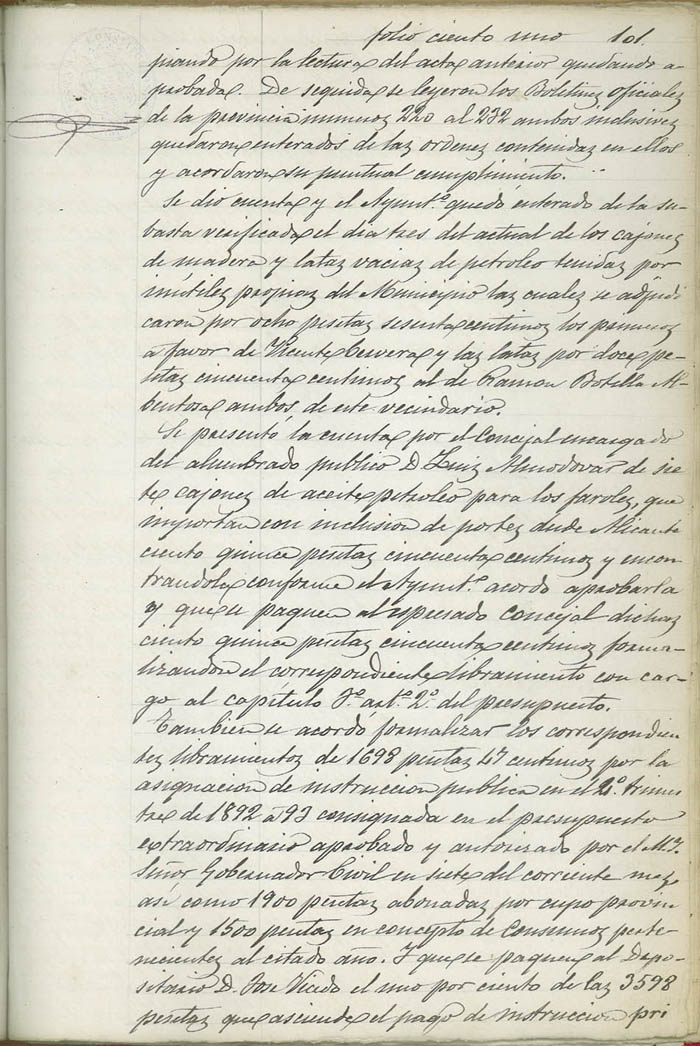 folio ciento uno 101.
piando por la lectura del acta anterior quedando a-
probada. De seguida se leyeron los Boletines oficiales
de la provincia numeros 220 al 232 ambos inclusives
quedaron enterados de las ordenes contenidas en ellos
y acordaron su puntual cumplimiento.
Se dio cuenta y el Ayuntº quedó enterado de la su-
basta verificada el dia tres del actual de los cajones
de madera y latas vacias de petroleo tenidas por
inútiles propias del Municipio las cuales se adjudi
caron por ocho pesetas sesenta centimos los primeros
a favor de Vicente Cervera y las latas por doce pe-
setas cincuenta centimos al de Ramon Botella Al-
bentosa ambos de este vecindario.
Se presentó la cuenta por el Concejal encargado
del alumbrado publico D. Luis Almodovar de sie
te cajones de aceite petroleo para los faroles, que
importan con inclusion de portes desde Alicante
ciento quince pesetas cincuenta centimos y encon
trandola conforme el Ayuntº acordó aprobarla
y que se paguen al espresado concejal dichas
ciento quince pesetas cincuenta centimos forma-
lizandose el correspondiente libramiento con car-
go al capítulo 3º artº 2º del presupuesto.
Tambien se acordó formalizar los correspondien
tes libramientos de 1698 pesetas 47 centimos por la
asignacion de instruccion publica en el 2º trimes
tre de 1892 á 93 consignada en el presupuesto
extraordinario aprobado y autorizado por el M. Y.
Señor Gobernador Civil en siete del corriente mes
asi como 1900 pesetas abonadas por cupo provin
cial y 1500 pesetas en concepto de Consumos perte-
necientes al citado año. Y que se paguen al Depo-
sitario D. Jose Vicedo el uno por ciento de las 3598
pesetas que asciende el pago de instruccion pri